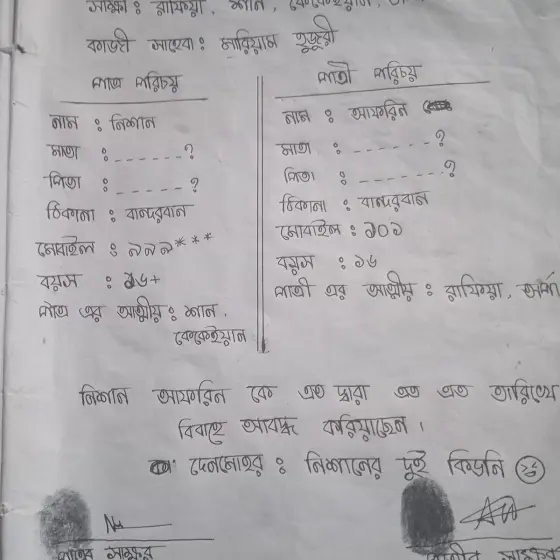 সাক্ষী : রাফিয়া, শান, কেকেইয়ান,
কাজী সাহেবা : মারিয়াম হুজুরী
পাত্র পরিচয়
নাম : নিশান
মাতা : ------?
পিতা : ------?
ঠিকানা : বান্দরবান
মোবাইল : ৯৯৯***
বয়স : ১৬+
পাত্র এর আত্মীয় : শান,
কেকেইয়ান
পাত্রী পরিচয়
নাম : আফরিন
মাতা : -------?
পিতা : -------?
ঠিকানা : বান্দরবান
মোবাইল : ১০১
বয়স : ১৬
পাত্রী এর আত্মীয় : রাফিয়া,
নিশান আফরিন কে এত দ্বারা অত্র এত তারিখে
বিবাহে আবদ্ধ করিয়াছেন।
দেনমোহর : নিশানের দুই কিডনি
পাত্রের সাক্ষর
পাত্রীর সাক্ষর